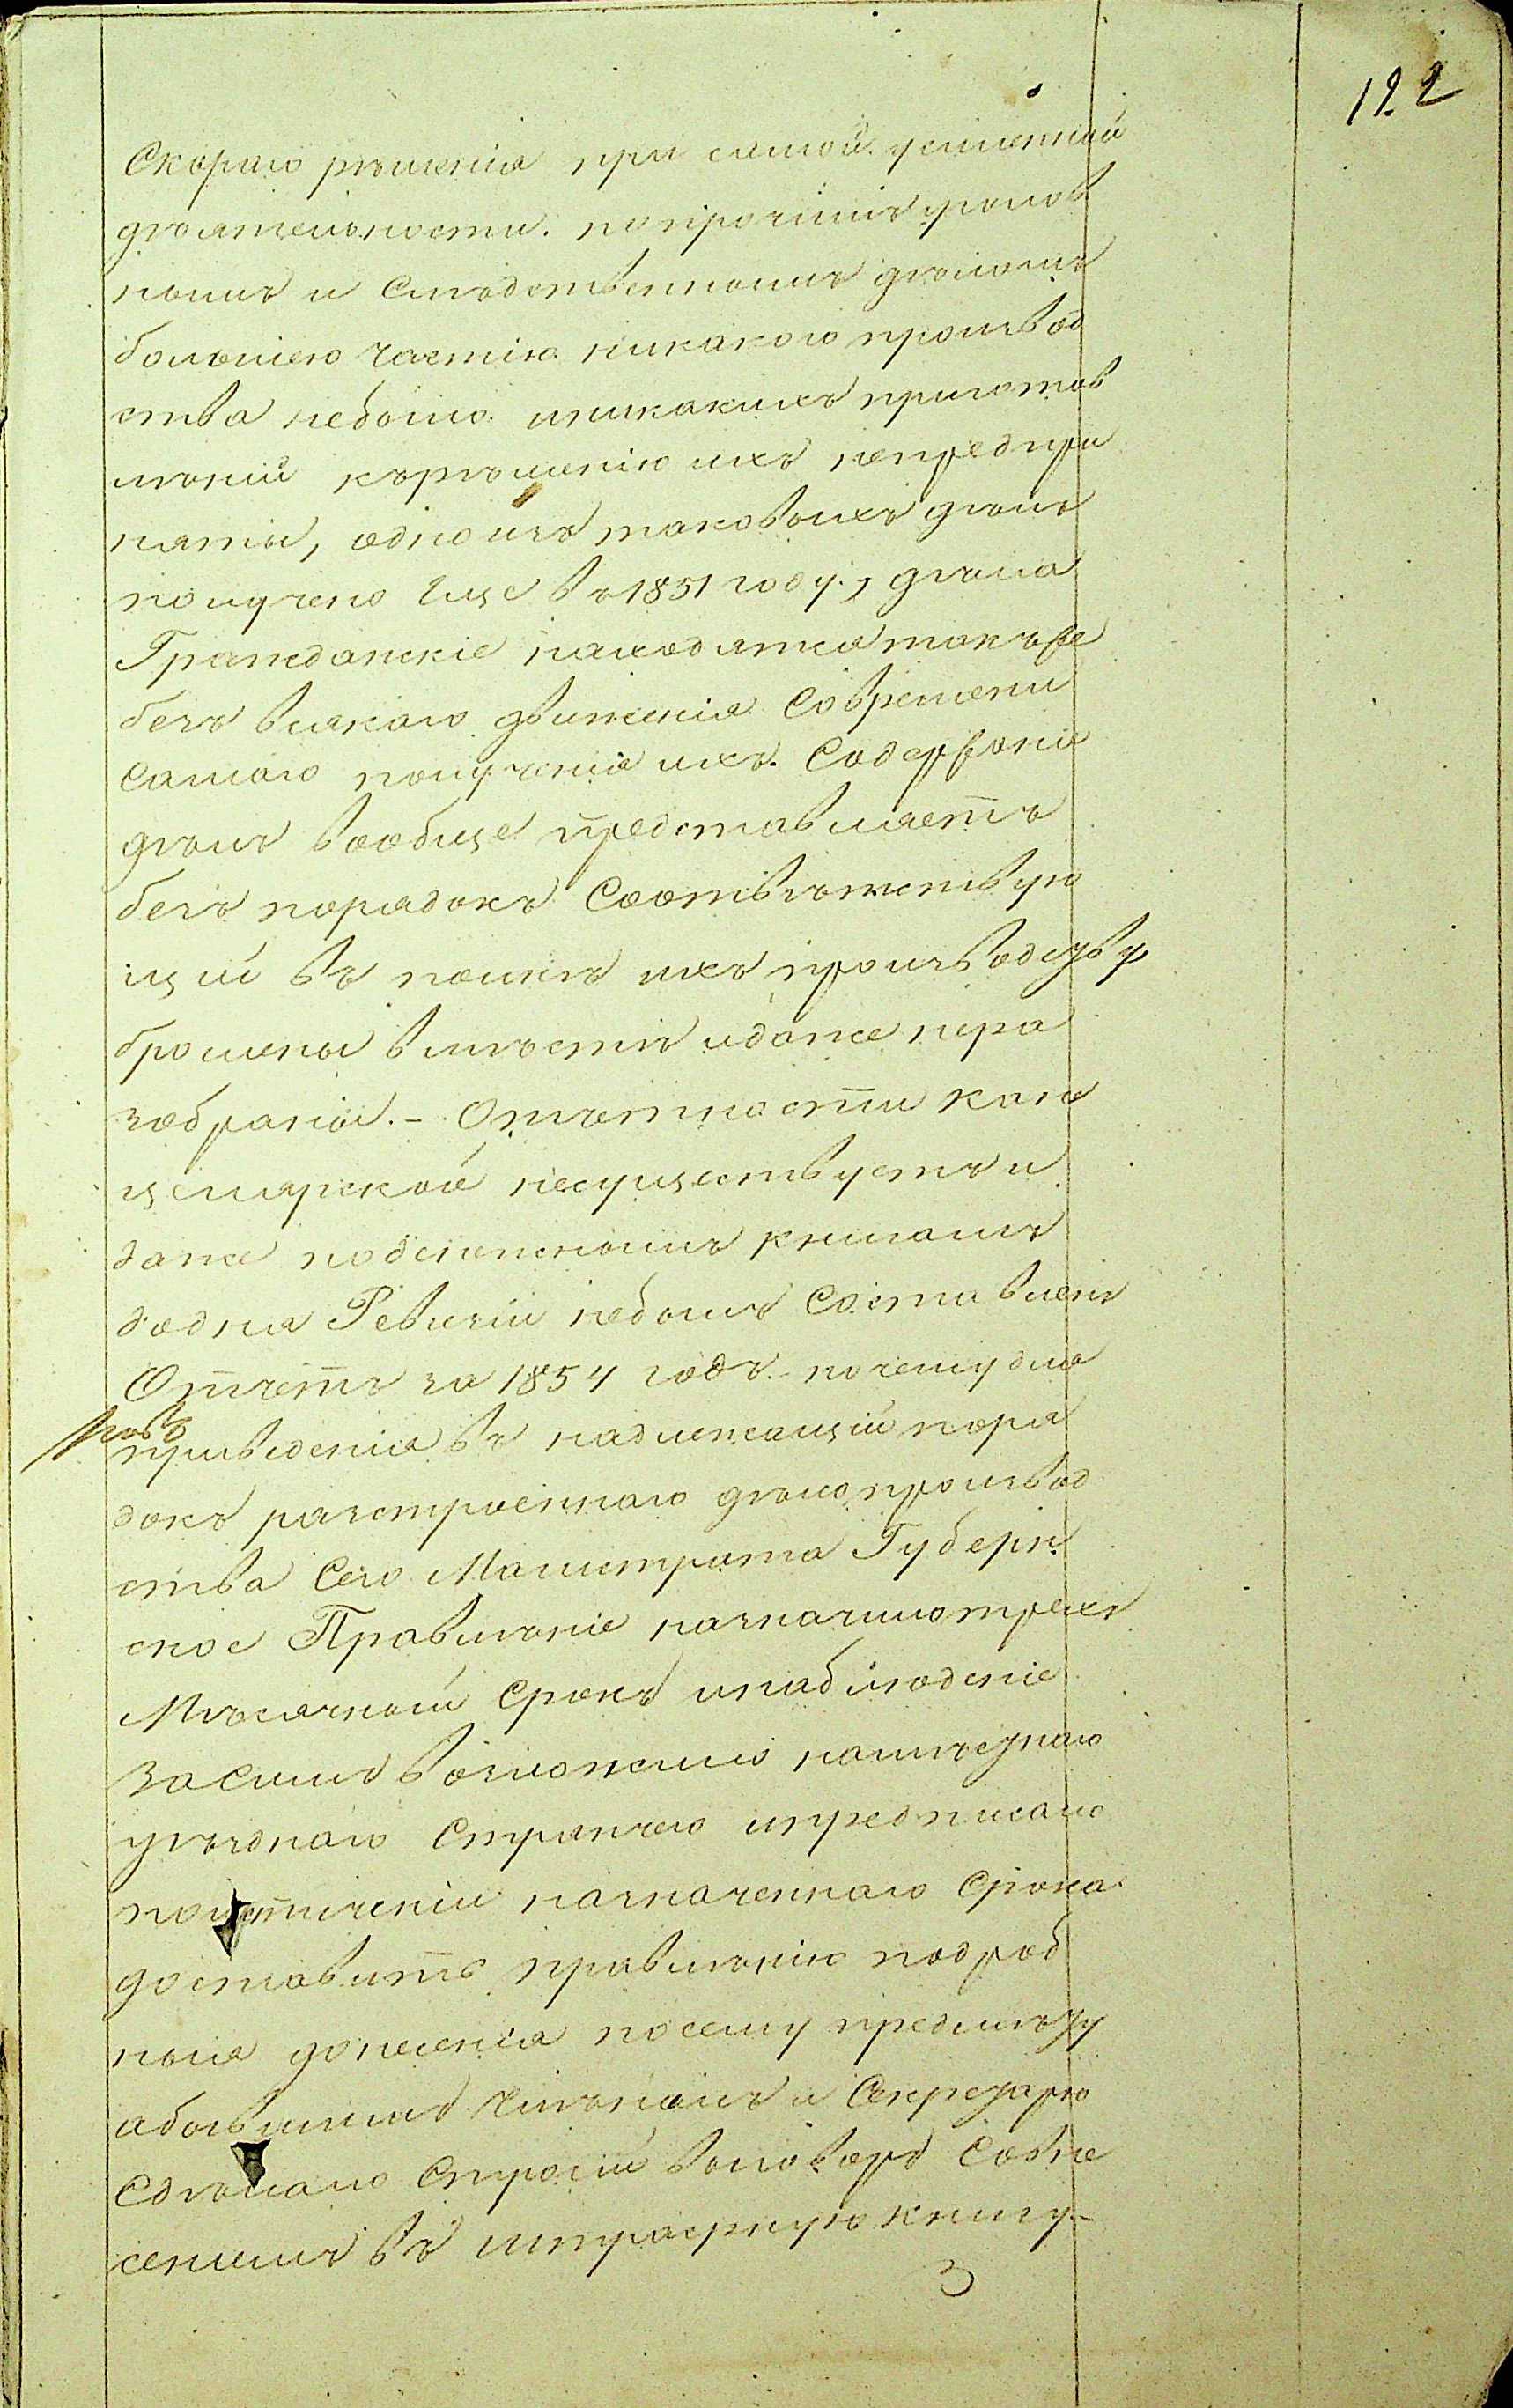 122
Скораго рѣшенія при самой усиленной
дѣятельности. попрочимъ уголов
нымъ и Слѣдственнымъ дѣламъ
большею частію никакого производ
ства небыло иникакихъ приготов
лѣній къ рѣшенію ихъ непредпри
нято, одно изъ таковыхъ дѣлъ
получено Еще въ 1851 году., дѣла
Гражданскіе находятся такъже
безъ всякаго движенія Современи
самаго полученія ихъ. Содержаніе
дѣлъ вообще представляетъ
безъ порядокъ Соотвѣтствую
щій въ полнѣ ихъ производству
брошены вмѣстѣ идаже нера
зобраны. – Отчетности кан
целярской несуществуетъ и
даже поденежнымъ книгамъ
додня Ревизіи небылъ Составленъ
Отчетъ за 1854 годъ. – почему для
приведенія въ надлежащій поря
докъ разстроеннаго дѣлопроизвод
ства Сего Магистрата Губерн
ское Правленіе назначило трехъ
Мѣсячный Срокъ инаблюденіе
За Симъ возложило намѣстнаго
уѣзднаго Стряпчего ипредписало
поистеченіи назначеннаго Срока
доставить правленію подроб
ныя донесенія посему предмѣту
абывшимъ Членамъ и Секретарю
Сдѣлано Строгій выговоръ Совне
сеніемъ въ штрафную книгу –